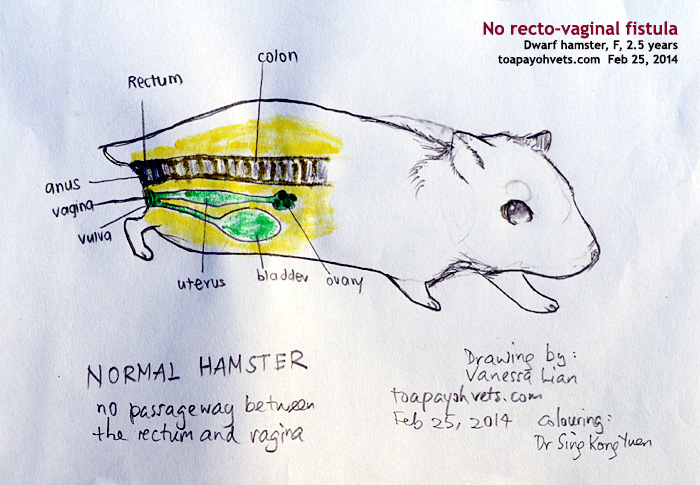 No recto-vaginal fistula
Dwarf hamster, F, 2.5 years
toapayohvets.com Feb 25, 2014
colon
Rectum
anus
vagina
vulva
uterus
bladder
ovary
NORMAL HAMSTER
no passageway between
the rectum and vagina
Drawing by:
Vanessa Lian
toapayohvets.com
Feb 25, 2014
colouring:
Dr Sing Kong Yuen